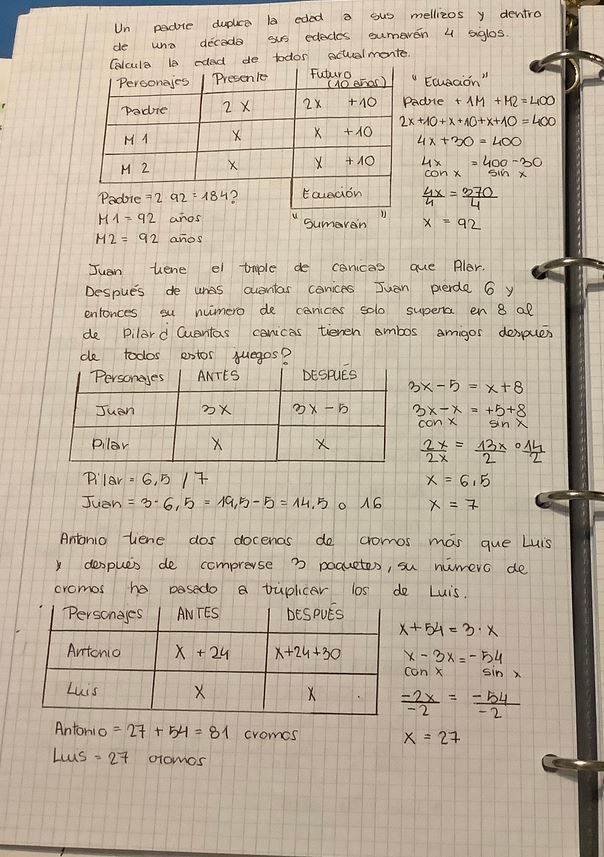 Un padre duplica la edad a sus mellizos y dentro
de una década sus edades sumarán 4 siglos.
Calcula la edad de todos actualmente.
Personajes | Presente | Futuro (10 años)
Padre | 2x | 2x +10
M1 | x | x +10
M2 | x | x +10
Ecuación
"Sumarán"
"Ecuación"
Padre + 1M + M2 = 400
2x+10+x+10+x+10 = 400
4x+30 = 400
4x = 400-30
con x sin x
4x/4 = 370/4
x = 92
Padre = 2 92 = 184?
M1 = 92 años
M2 = 92 años
Juan tiene el triple de canicas que Pilar.
Después de unas cuantas canicas Juan pierde 6 y
entonces su número de canicas solo supera en 8 al
de Pilar ¿Cuantas canicas tienen ambos amigos después
de todos estos juegos?
Personajes | ANTES | DESPUÉS
Juan | 3x | 3x-5
Pilar | x | x
3x-5 = x+8
3x-x = +5+8
con x sin x
2x/2x = 13x/2 o 14/2
x = 6,5
x = 7
Pilar = 6,5 / 7
Juan = 3·6,5 = 19,5-5 = 14,5 o 16
Antonio tiene dos docenas de cromos más que Luis
y después de comprarse 3 paquetes, su número de
cromos ha pasado a triplicar los de Luis.
Personajes | ANTES | DESPUÉS
Antonio | x +24 | x+24+30
Luis | x | x
x+54 = 3·x
x-3x = -54
con x sin x
-2x/-2 = -54/-2
x = 27
Antonio = 27 + 54 = 81 cromos
Luis = 27 cromos